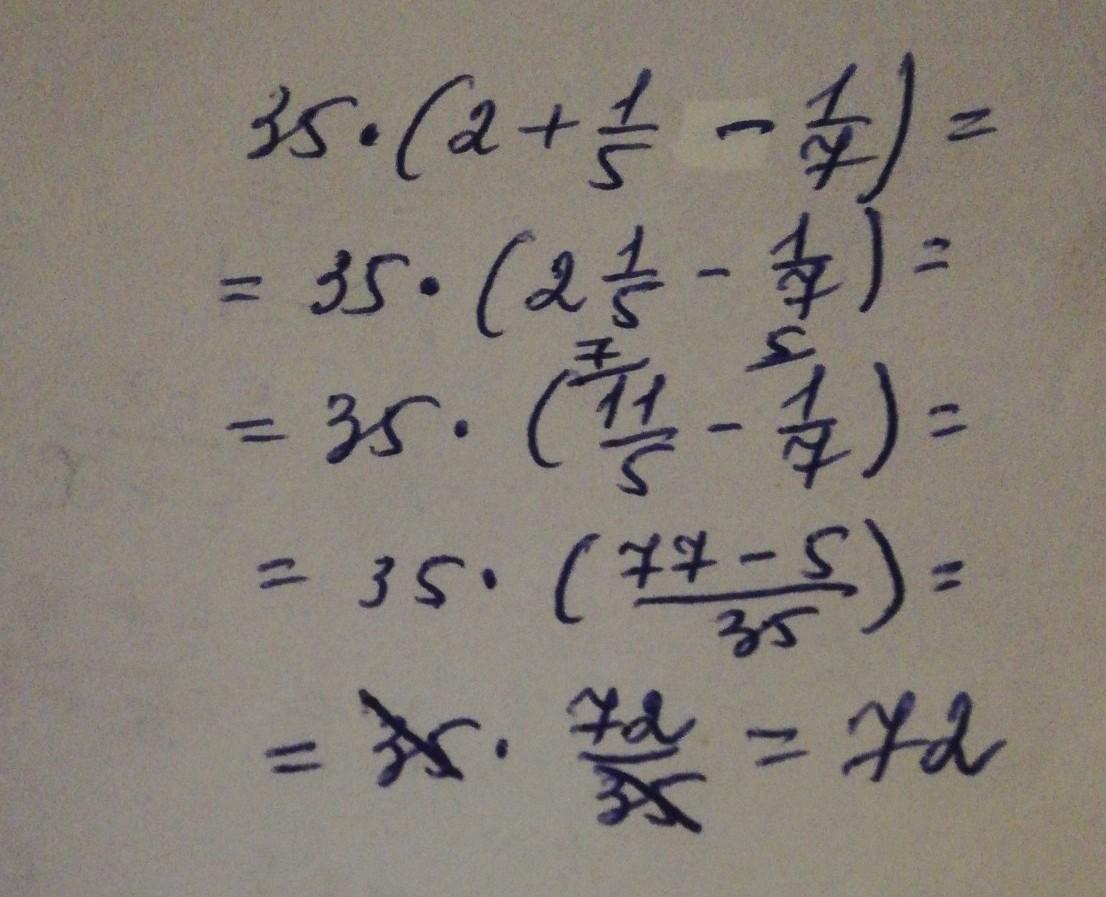 35·(2+1/5 - 1/7)=
= 35·(2 1/5 - 1/7)=
7 5
= 35·(11/5 - 1/7)=
= 35·(77-5/35)=
= 35·72/35 = 72